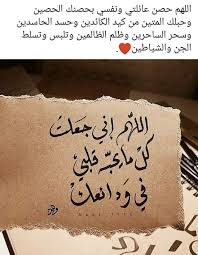 اللهم حصن عائلتي ونفسي بحصنك الحصين
وحبلك المتين من كيد الكائدين وحسد الحاسدين
وسحر الساحرين وظلم الظالمين وتلبس وتسلط
الجن والشياطين❤️.
اللهم إني جعلت
كل ما يحبه قلبي
في ودائعك